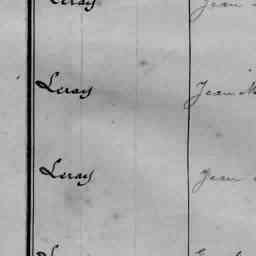 Leray Jean
Leray Jean
Leray Jean